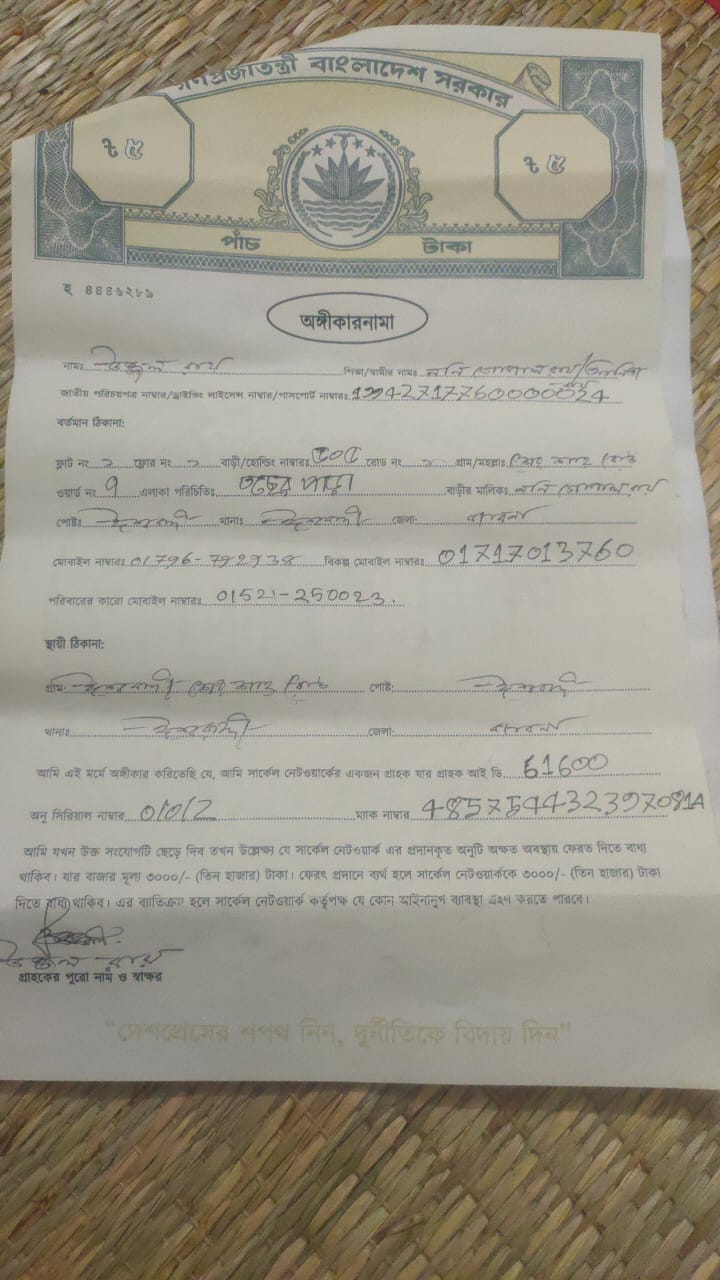 গণপ্রজাতন্ত্রী বাংলাদেশ সরকার
৳ ৫ ৳ ৫
পাঁচ টাকা
হ ৪৪৪৬২৮৯
অঙ্গীকারনামা
নামঃ উজ্জ্বল রায় পিতা/স্বামীর নামঃ ননি গোপাল রায়
জাতীয় পরিচয়পত্র নাম্বার/ড্রাইভিং লাইসেন্স নাম্বার/পাসপোর্ট নাম্বারঃ 19942717760000024
বর্তমান ঠিকানা:
ফ্লাট নং ফ্লোর নং বাড়ী/হোল্ডিং নাম্বারঃ রোড নং গ্রাম/মহল্লাঃ শের শাহ রোড
ওয়ার্ড নং এলাকা পরিচিতিঃ পাড়া বাড়ীর মালিকঃ ননি গোপাল রায়
পোষ্টঃ ঈশ্বরদী থানাঃ ঈশ্বরদী জেলা: পাবনা
মোবাইল নাম্বারঃ 01796-792938 বিকল্প মোবাইল নাম্বারঃ 01717013760
পরিবারের কারো মোবাইল নাম্বারঃ 01521-250023.
স্থায়ী ঠিকানা:
গ্রাম: ঈশ্বরদী শের শাহ রোড পোষ্ট: ঈশ্বরদী
থানাঃ ঈশ্বরদী জেলা: পাবনা
আমি এই মর্মে অঙ্গীকার করিতেছি যে, আমি সার্কেল নেটওয়ার্কের একজন গ্রাহক যার গ্রাহক আই ডি 61600
অনু সিরিয়াল নাম্বার 01012 ম্যাক নাম্বার 485754432397081A
আমি যখন উক্ত সংযোগটি ছেড়ে দিব তখন উল্লেক্ষ্য যে সার্কেল নেটওয়ার্ক এর প্রদানকৃত অনুটি অক্ষত অবস্থায় ফেরত দিতে বাধ্য
থাকিব। যার বাজার মূল্য ৩০০০/- (তিন হাজার) টাকা। ফেরৎ প্রদানে ব্যর্থ হলে সার্কেল নেটওয়ার্ককে ৩০০০/- (তিন হাজার) টাকা
দিতে বাধ্য থাকিব। এর ব্যতিক্রম হলে সার্কেল নেটওয়ার্ক কর্তৃপক্ষ যে কোন আইনানুগ ব্যবস্থা গ্রহণ করতে পারবে।
উজ্জ্বল রায়
গ্রাহকের পুরো নাম ও স্বাক্ষর
“দেশপ্রেমের শপথ নিন, দুর্নীতিকে বিদায় দিন”